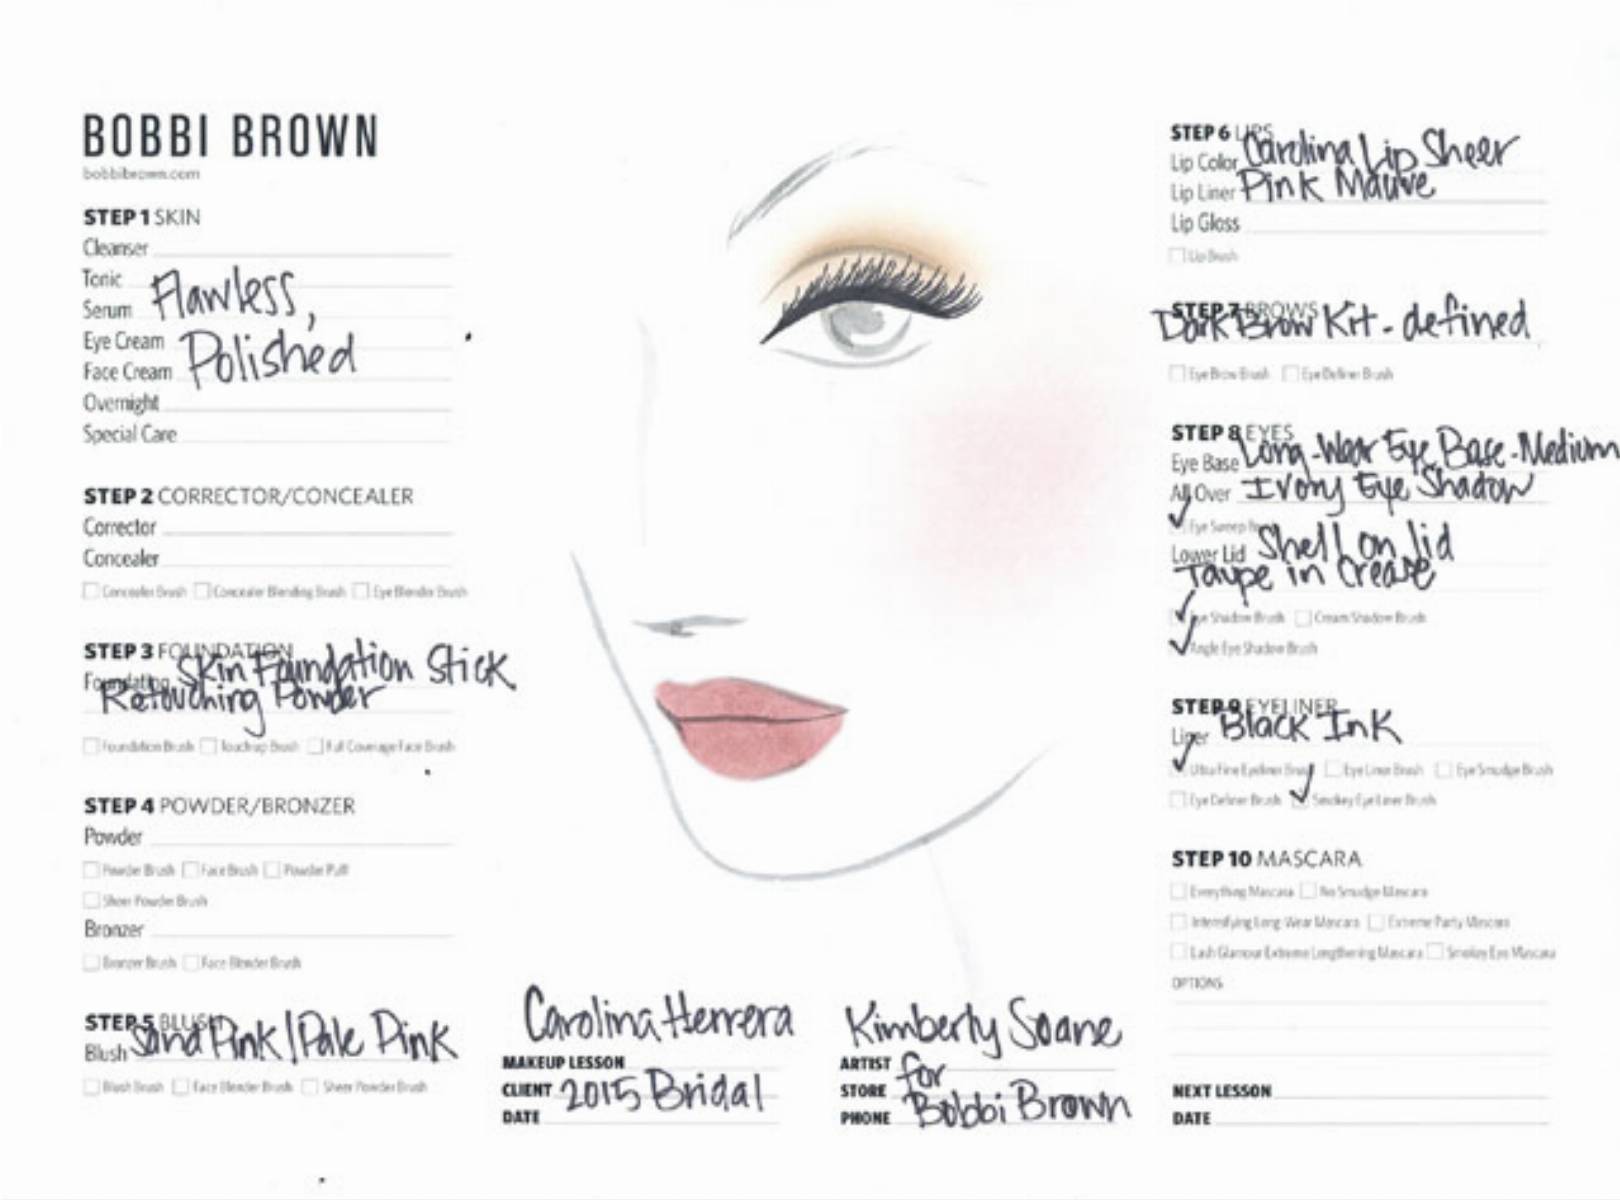 BOBBI BROWN
bobbibrown.com
STEP 1 SKIN
Cleanser
Tonic
Serum Flawless,
Eye Cream
Face Cream Polished
Overnight
Special Care
STEP 2 CORRECTOR/CONCEALER
Corrector
Concealer
Concealer Brush Concealer Blending Brush Eye Blender Brush
STEP 3 FOUNDATION
Foundation Skin Foundation Stick
Retouching Powder
Foundation Brush Touch up Brush Full Coverage Face Brush
STEP 4 POWDER/BRONZER
Powder
Powder Brush Face Brush Powder Puff
Sheer Powder Brush
Bronzer
Bronzer Brush Face Blender Brush
STEP 5 BLUSH
Blush Sand Pink/Pale Pink
Blush Brush Face Blender Brush Sheer Powder Brush
Carolina Herrera
MAKEUP LESSON
CLIENT 2015 Bridal
DATE
Kimberly Soane
ARTIST for
STORE
PHONE Bobbi Brown
STEP 6 LIPS
Lip Color Carolina Lip Sheer
Lip Liner Pink Mauve
Lip Gloss
Lip Brush
STEP 7 BROWS
Dark Brow Kit - defined
Eye Brow Brush Eye Definer Brush
STEP 8 EYES
Eye Base Long-Wear Eye Base-Medium
All Over Ivory Eye Shadow
Eye Sweep
Lower Lid Shell on lid
Taupe in Crease
Eye Shadow Brush Cream Shadow Brush
Angle Eye Shadow Brush
STEP 9 EYELINER
Liner Black Ink
Ultra Fine Eyeliner Brush Eye Liner Brush Eye Smudge Brush
Eye Definer Brush Smokey Eye Liner Brush
STEP 10 MASCARA
Everything Mascara No Smudge Mascara
Intensifying Long-Wear Mascara Extreme Party Mascara
Lash Glamour Extreme Lengthening Mascara Smokey Eye Mascara
OPTIONS
NEXT LESSON
DATE